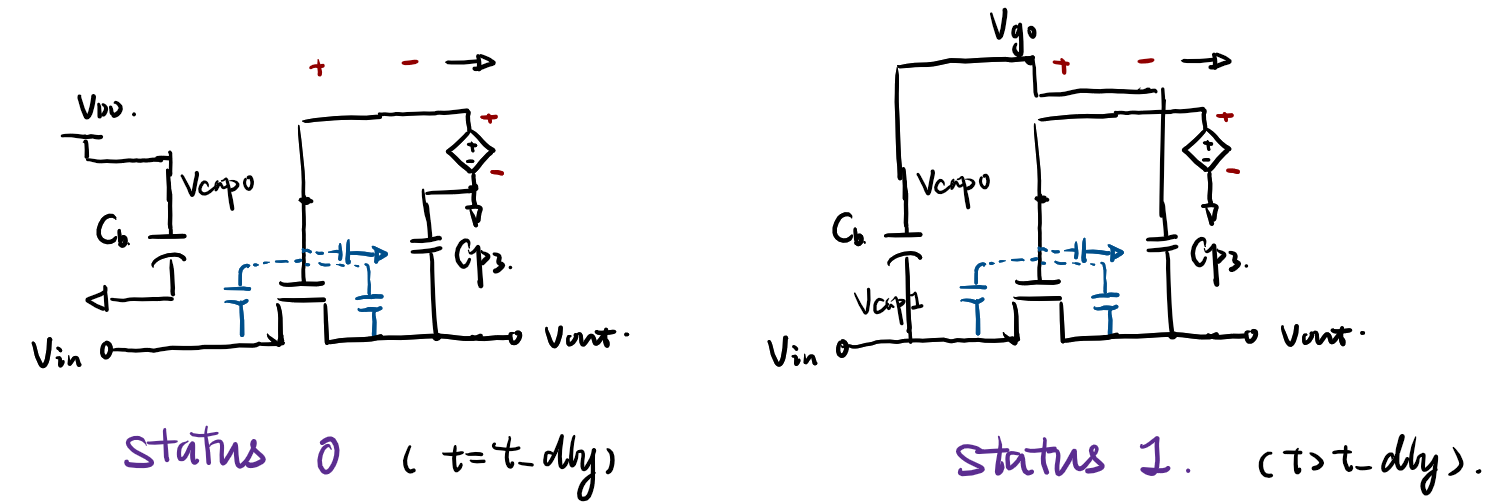 VDD.
Vcap0
Cb.
Cp3.
Vin
Vout.
status 0 (t=t_dly)
Vgo
Vcap0
Cb.
Vcap1
Cp3.
Vin
Vout.
status 1. (t>t_dly).